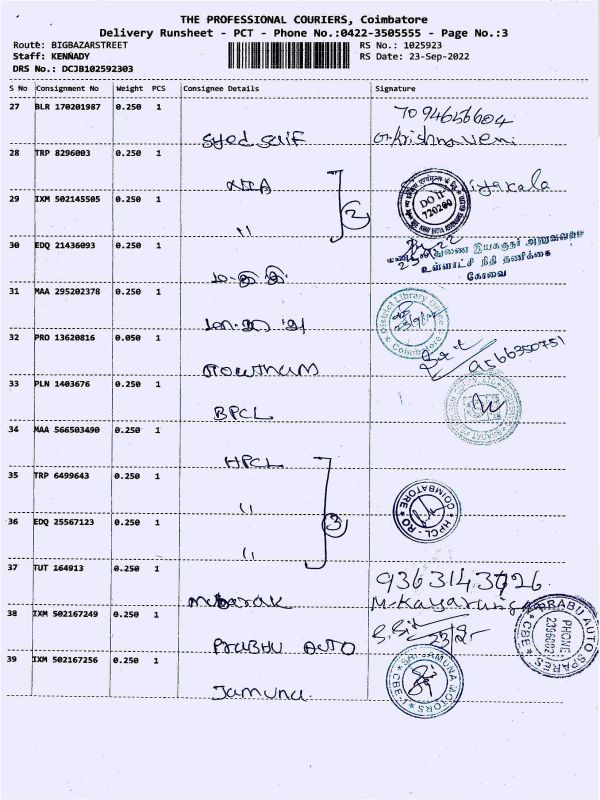 THE PROFESSIONAL COURIERS, Coimbatore
Delivery Runsheet - PCT - Phone No.:0422-3505555 - Page No.:3
Route: BIGBAZARSTREET
RS No.: 1025923
Staff: KENNADY
RS Date: 23-Sep-2022
DRS No.: DCJB102592303
S No Consignment No Weight PCS Consignee Details Signature
27 BLR 170201987 0.250 1
7094656604
Syed saif
G.Krishnaveni
28 TRP 8296003 0.250 1
29 IXM 502145505 0.250 1
2
DO II
720200
"
30 EDQ 21436093 0.250 1
உள்ளாட்சி நிதி தணிக்கை
கோவை
31 MAA 295202378 0.250 1
District Library Office
Coimbatore
32 PRO 13620816 0.050 1
9566350751
Gowtham
33 PLN 1403676 0.250 1
BPCL
34 MAA 566503490 0.250 1
HPCL
35 TRP 6499643 0.250 1
"
3
COIMBATORE
HPCL - RO
36 EDQ 25567123 0.250 1
"
37 TUT 164913 0.250 1
Mubarak
38 IXM 502167249 0.250 1
PRABHU AUTO
23/9
PRABU AUTO SPARES
PHONE:
2396602
CBE
39 IXM 502167256 0.250 1
Jamuna
SRI JAMUNA MOTORS
CBE-1